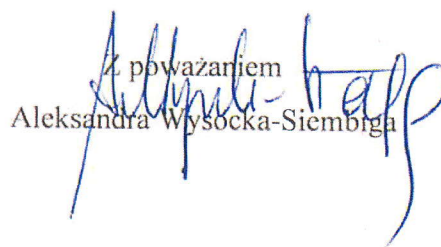 Z poważaniem
Aleksandra Wysocka-Siembiga